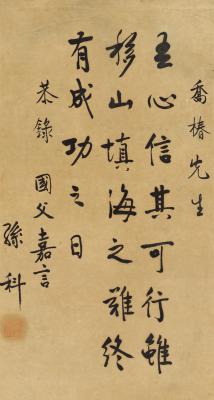 喬椿先生
吾心信其可行雖
移山填海之難終
有成功之日
恭錄 國父嘉言
孫科